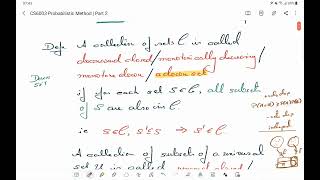 07:43
CS6003 Probabilistic Method | Part 2
Defn A collection of sets C is called
downward closed / monotonically decreasing /
monotone down / a down set
Down
SET
if for each set S ∈ C, all subsets
of S are also in C
ie S ∈ C, S' ⊆ S ⇒ S' ∈ C
A collection of subsets of a universal
set U is called upward closed /